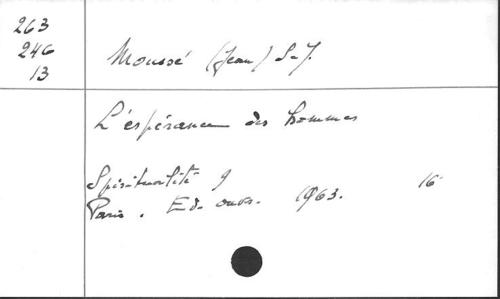 263
246
13
Moussé (Jean) S.J.
L'espérance des hommes
Spiritualité 9
Paris. Ed. ouv. 1963. 16